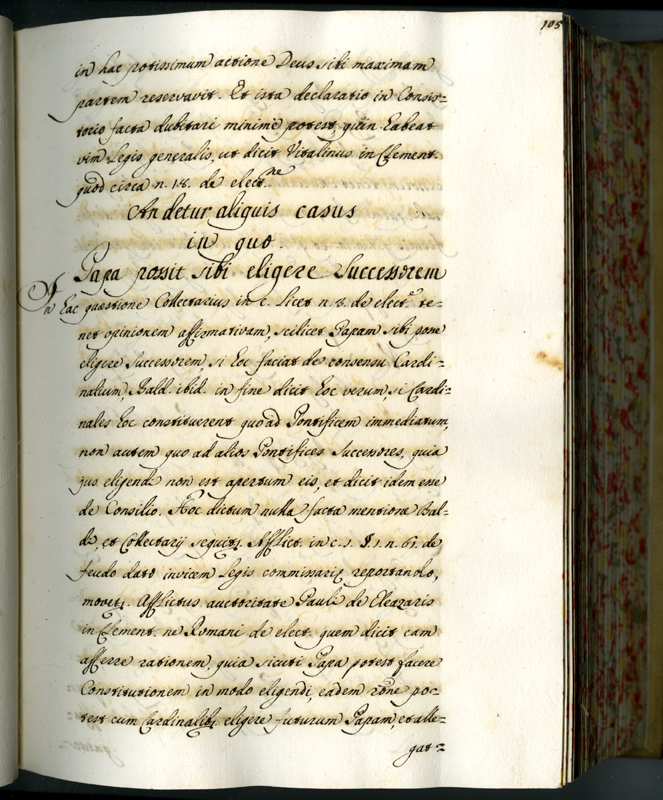 105
in hac potissimum actione Deus sibi maximam
partem reservavit. Et ista declaratio in Consis=
torio facta dubitari minimè potest, quin habeat
vim Legis generalis, ut dicit Vitalinus in Clement.
quod circa n. 18. de elect.ne
An detur aliquis casus
in quo
Papa possit sibi eligere Successorem
In hac quæstione Collectarius in c. Licet n. 8. de elect.e te=
net opinionem affirmativam, scilicet Papam sibi posse
eligere Successorem, si hoc faciat de consensu Cardi=
nalium, Bald. ibid. in fine dicit hoc verum, si Cardi=
nales hoc constituerent quo ad Pontificem immediatum,
non autem quo ad alios Pontifices Successores, quia
jus eligendi non est apertum eis, et dicit idem esse
de Consilio. Hoc dictum nulla facta mentione Bal=
di, et Collectarij sequitr. Afflict. in c. 1. §. 1. n. 61. de
feudo dato invicem legis commissarię reportando,
movetr. Afflictus auctoritate Pauli de Eleazaris
in Clement. ne Romani de elect. quem dicit eam
afferre rationem, quia sicuti Papa potest facere
Constitutionem in modo eligendi, eadem rõne po=
test cum Cardinalibs. eligere futurum Papam, et alle=
gat